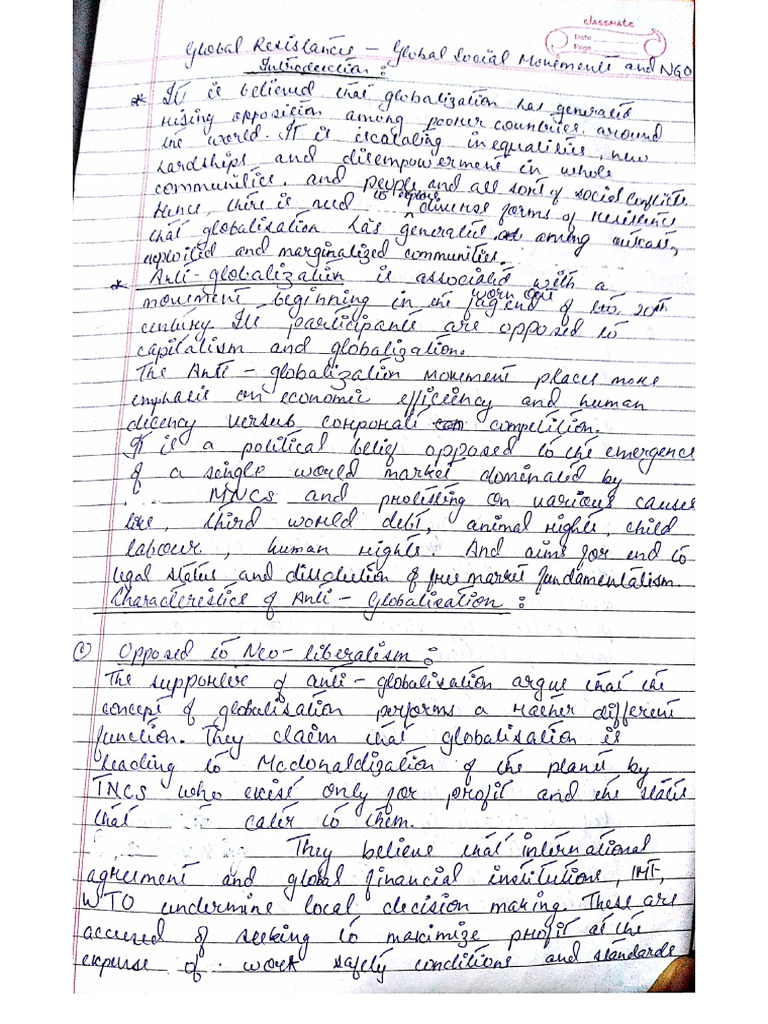 classmate
Date
Page
Global Resistances – Global Social Movements and NGO
Introduction :
* It is believed that globalization has generated
rising opposition among poorer countries around
the world. It is escalating inequalities, new
hardships and disempowerment in whole
communities, and people and all sort of social conflicts
Hence, there is need to explore diverse forms of resistence
that globalisation has generated among outcast,
exploited and marginalized communities.
* Anti-globalization is associated with a
movement beginning in the fag end of 20th
worn out
century. Its participants are opposed to
capitalism and globalization.
The Anti-globalization movement places more
emphasis on economic efficiency and human
decency versus corporate competition.
It is a political belief opposed to the emergence
of a single world market dominated by
MNCS and protesting on various causes
like, third world debt, animal rights, child
labour, human rights. And aims for end to
legal status and dissolution of free market fundamentalism
Characteristics of Anti-Globalisation :
Opposed to Neo-liberalism :
The supporter of anti-globalisation argue that the
concept of globalisation performs a rather different
function. They claim that globalisation is
leading to Mcdonaldization of the planet by
TNCS who exist only for profit and the states
that cater to them.
They believe that international
agreement and global financial institutions, IMF,
WTO undermine local decision making. These are
accused of seeking to maximize profit at the
expense of work safety conditions and standards